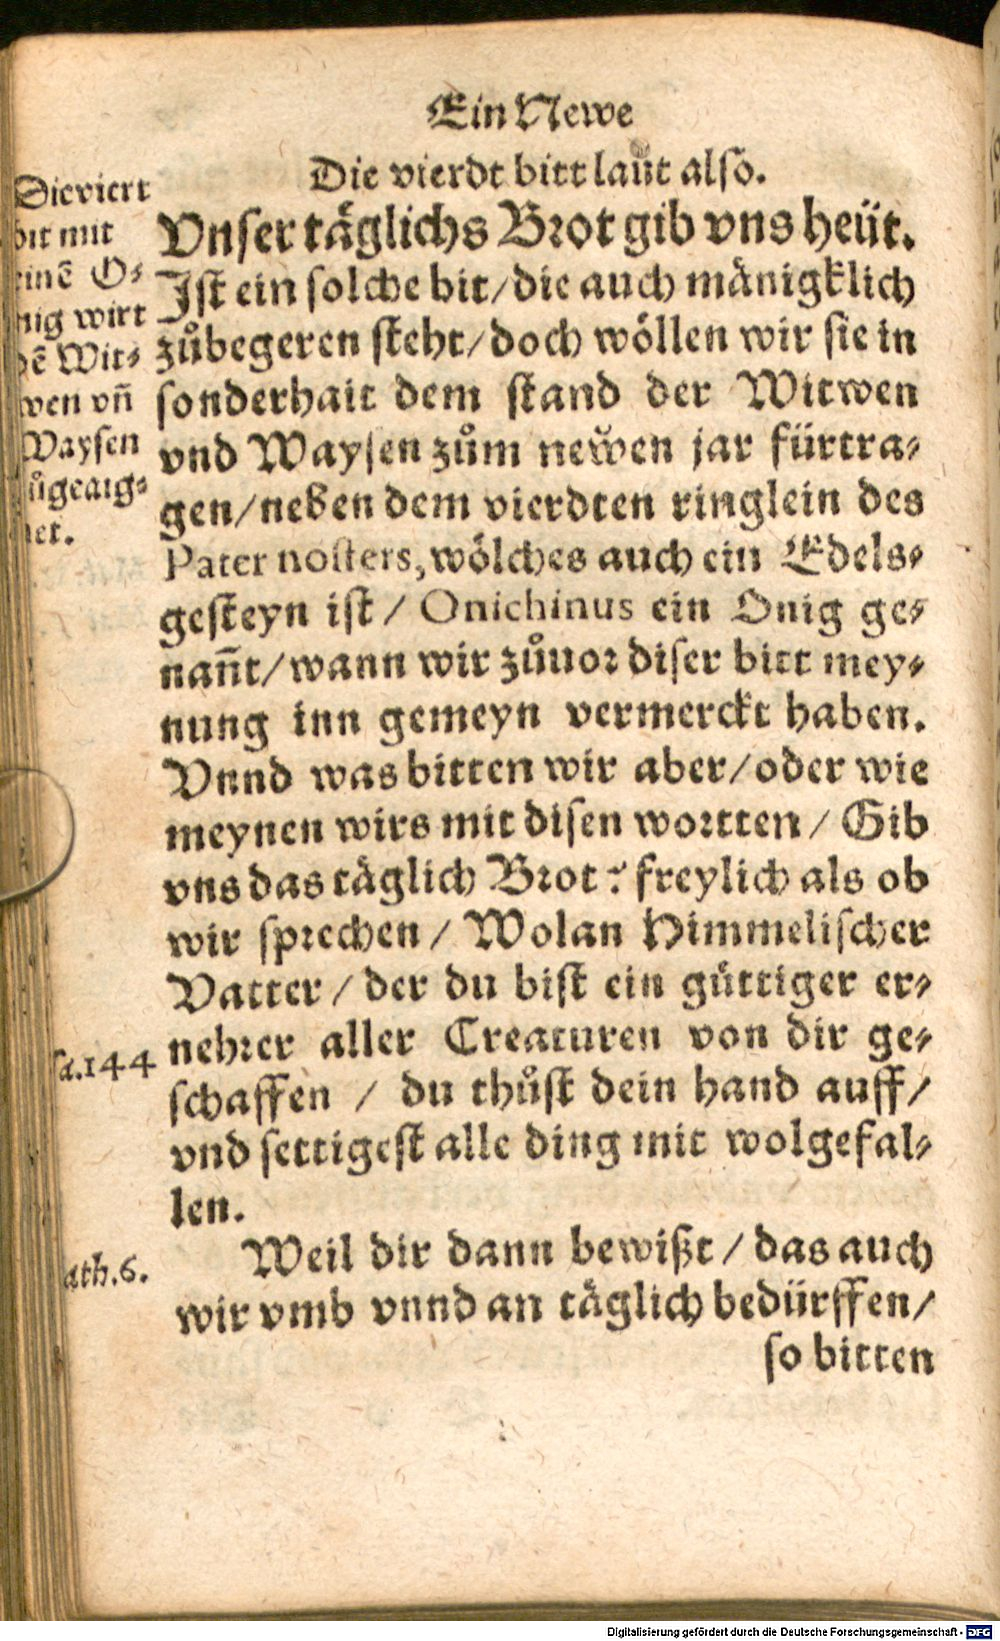 Ein Newe
Die vierdt bitt laut also.
Die viert
bit mit
einē O⸗
nig wirt
dē Wit⸗
wen vñ
Waysen
zůgeaig⸗
net.
Vnser täglichs Brot gib vns heüt.
Ist ein solche bit/die auch mänigklich
zůbegeren steht/doch wöllen wir sie in
sonderhait dem stand der Witwen
vnd Waysen zům newen jar fürtra⸗
gen/neben dem vierdten ringlein des
Pater nosters, wölches auch ein Edels⸗
gesteyn ist/ Onichinus ein Onig ge⸗
nañt/wann wir zůuor diser bitt mey⸗
nung inn gemeyn vermerckt haben.
Vnnd was bitten wir aber/oder wie
meynen wirs mit disen wortten/ Gib
vns das täglich Brot? freylich als ob
wir sprechen/ Wolan Himmelischer
Vatter/ der du bist ein güttiger er⸗
nehrer aller Creaturen von dir ge⸗
schaffen / du thůst dein hand auff/
vnd settigest alle ding mit wolgefal⸗
len.
sa.144
Weil dir dann bewißt/ das auch
wir vmb vnnd an täglich bedürffen/
ath.6.
so bitten
Digitalisierung gefördert durch die Deutsche Forschungsgemeinschaft - DFG